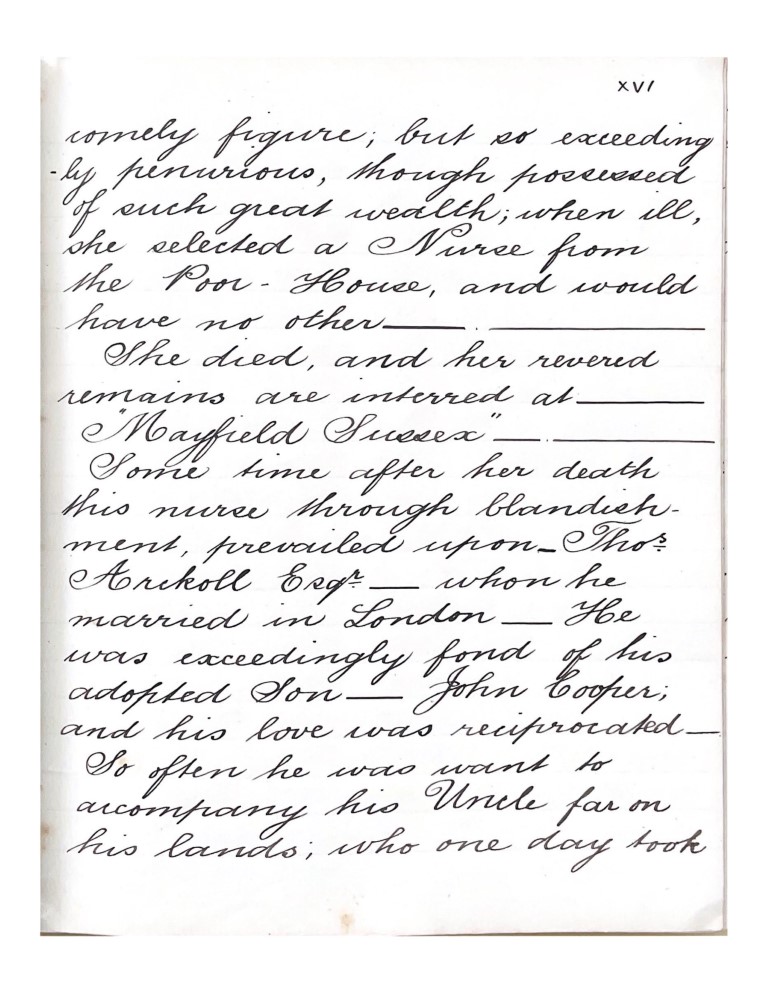 XVI
comely figure; but so exceeding
-ly penurious, though possessed
of such great wealth; when ill,
she selected a Nurse from
the Poor-House, and would
have no other ——. ————
She died, and her revered
remains are interred at ———
"Mayfield Sussex" —.————
Some time after her death
this nurse through blandish-
ment, prevailed upon – Thos
Arikoll Esqr — whon he
married in London — He
was exceedingly fond of his
adopted Son — John Cooper;
and his love was reciprocated —
So often he was want to
accompany his Uncle far on
his lands; who one day took